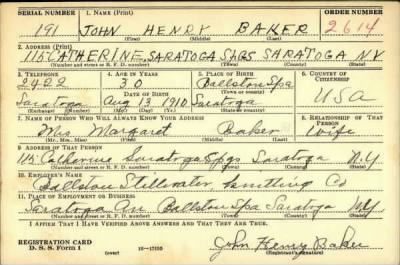 SERIAL NUMBER 1. NAME (Print) ORDER NUMBER
191 JOHN HENRY BAKER 2614
(First) (Middle) (Last)
2. ADDRESS (Print)
115 CATHERINE, SARATOGA SPGS SARATOGA N.Y
(Number and street or R. F. D. number) (Town) (County) (State)
3. TELEPHONE 4. AGE IN YEARS 5. PLACE OF BIRTH 6. COUNTRY OF CITIZENSHIP
2422 30 Ballston Spa
DATE OF BIRTH (Town or county)
Saratoga Aug 13 1910 Saratoga USA
(Exchange) (Number) (Mo.) (Day) (Yr.) (State or country)
7. NAME OF PERSON WHO WILL ALWAYS KNOW YOUR ADDRESS 8. RELATIONSHIP OF THAT PERSON
Mrs Margaret Baker wife
(Mr., Mrs., Miss) (First) (Middle) (Last)
9. ADDRESS OF THAT PERSON
115 Catharine Saratoga Spgs Saratoga N.Y
(Number and street or R. F. D. number) (Town) (County) (State)
10. EMPLOYER'S NAME
Ballston Stillwater Knitting Co
11. PLACE OF EMPLOYMENT OR BUSINESS
Saratoga Av Ballston Spa Saratoga NY
(Number and street or R. F. D. number) (Town) (County) (State)
I AFFIRM THAT I HAVE VERIFIED ABOVE ANSWERS AND THAT THEY ARE TRUE.
REGISTRATION CARD
D. S. S. Form 1 (over) 16—17105
John Henry Baker
(Registrant's signature)